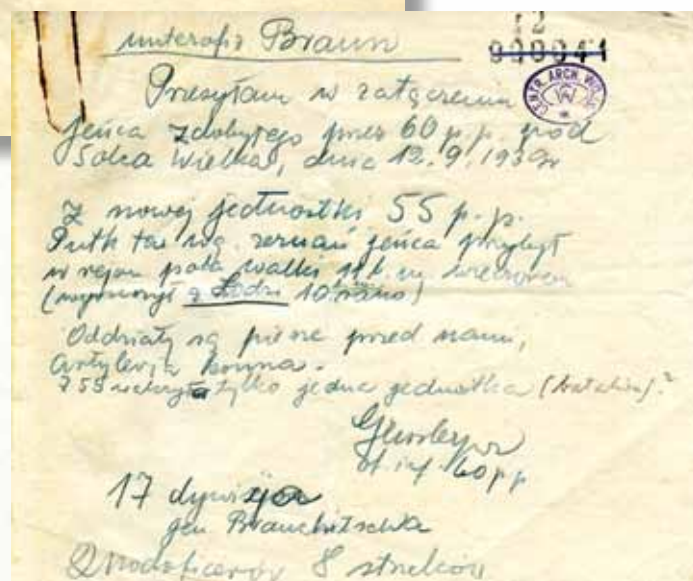 unterofic Braun
12
920041
CENTR. ARCH. WOJSK.
Przesyłam w załączeniu
jeńca zdobytego przez 60 p.p. pod
Solca Wielka, dnia 12.9.1939r
Z nowej jednostki 55 p.p.
Pułk ten wg. zeznań jeńca przybył
w rejon pola walki 11 b.m. wieczorem
(wymaszerował z Łodzi 10 rano)
Oddziały są piesze przed nami,
artyleria konna.
Z 55 walczyła tylko jedna jednostka (batalion)?
of. inf. 60 pp
17 dywizja
gen. Brauchitschka
2 podoficerów 8 strzelców